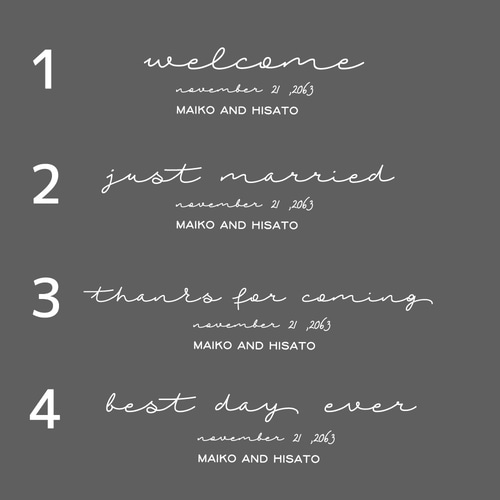 1
welcome
november 21 ,2063
MAIKO AND HISATO
2
just married
november 21 ,2063
MAIKO AND HISATO
3
thanks for coming
november 21 ,2063
MAIKO AND HISATO
4
best day ever
november 21 ,2063
MAIKO AND HISATO